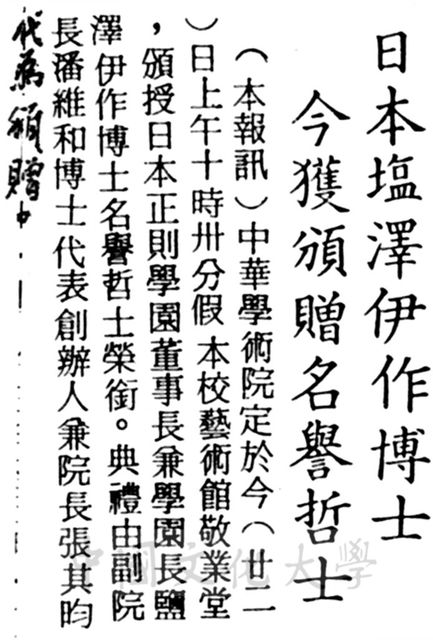 日本塩澤伊作博士
今獲頒贈名譽哲士
（本報訊）中華學術院定於今（廿二
）日上午十時卅分假 本校藝術館敬業堂
，頒授日本正則學園董事長兼學園長鹽
澤伊作博士名譽哲士榮銜。典禮由副院
長潘維和博士代表創辦人兼院長張其昀
代為頒贈
中國文化大學